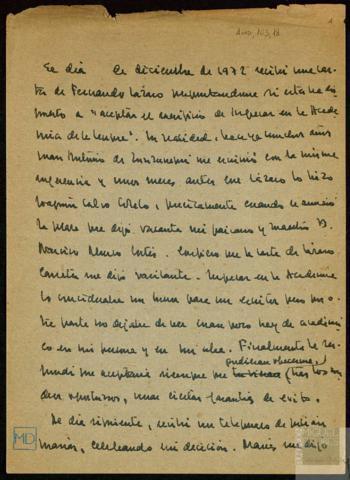 El día      de diciembre de 1972 recibí una car-
ta de Fernando Lázaro preguntándome si estaba dis-
puesto a "aceptar el sacrificio de ingresar en la Acade-
mia de la Lengua". En realidad, hace ya muchos años
Juan Antonio de Zunzunegui me escribió con la misma
sugerencia y unos meses antes que Lázaro lo hizo
Joaquín Calvo Sotelo, precisamente cuando se anunció
la plaza que dejó vacante mi paisano y maestro D.
Narciso Alonso Cortés. Confieso que la carta de Lázaro
Carreter me dejó vacilante. Ingresar en la Academia
lo consideraba un honor para un escritor pero por o-
tra parte no dejaba de ver cuan poco hay de académi-
co en mi persona y en mi obra. Finalmente le res-
pondí que aceptaría siempre que pudieran ofrecerme, (tras los son-
deos oportunos, unas ciertas garantías de éxito.
Al día siguiente, recibí un telefonazo de Julián
Marías, celebrando mi decisión. Marías me dijo
MD